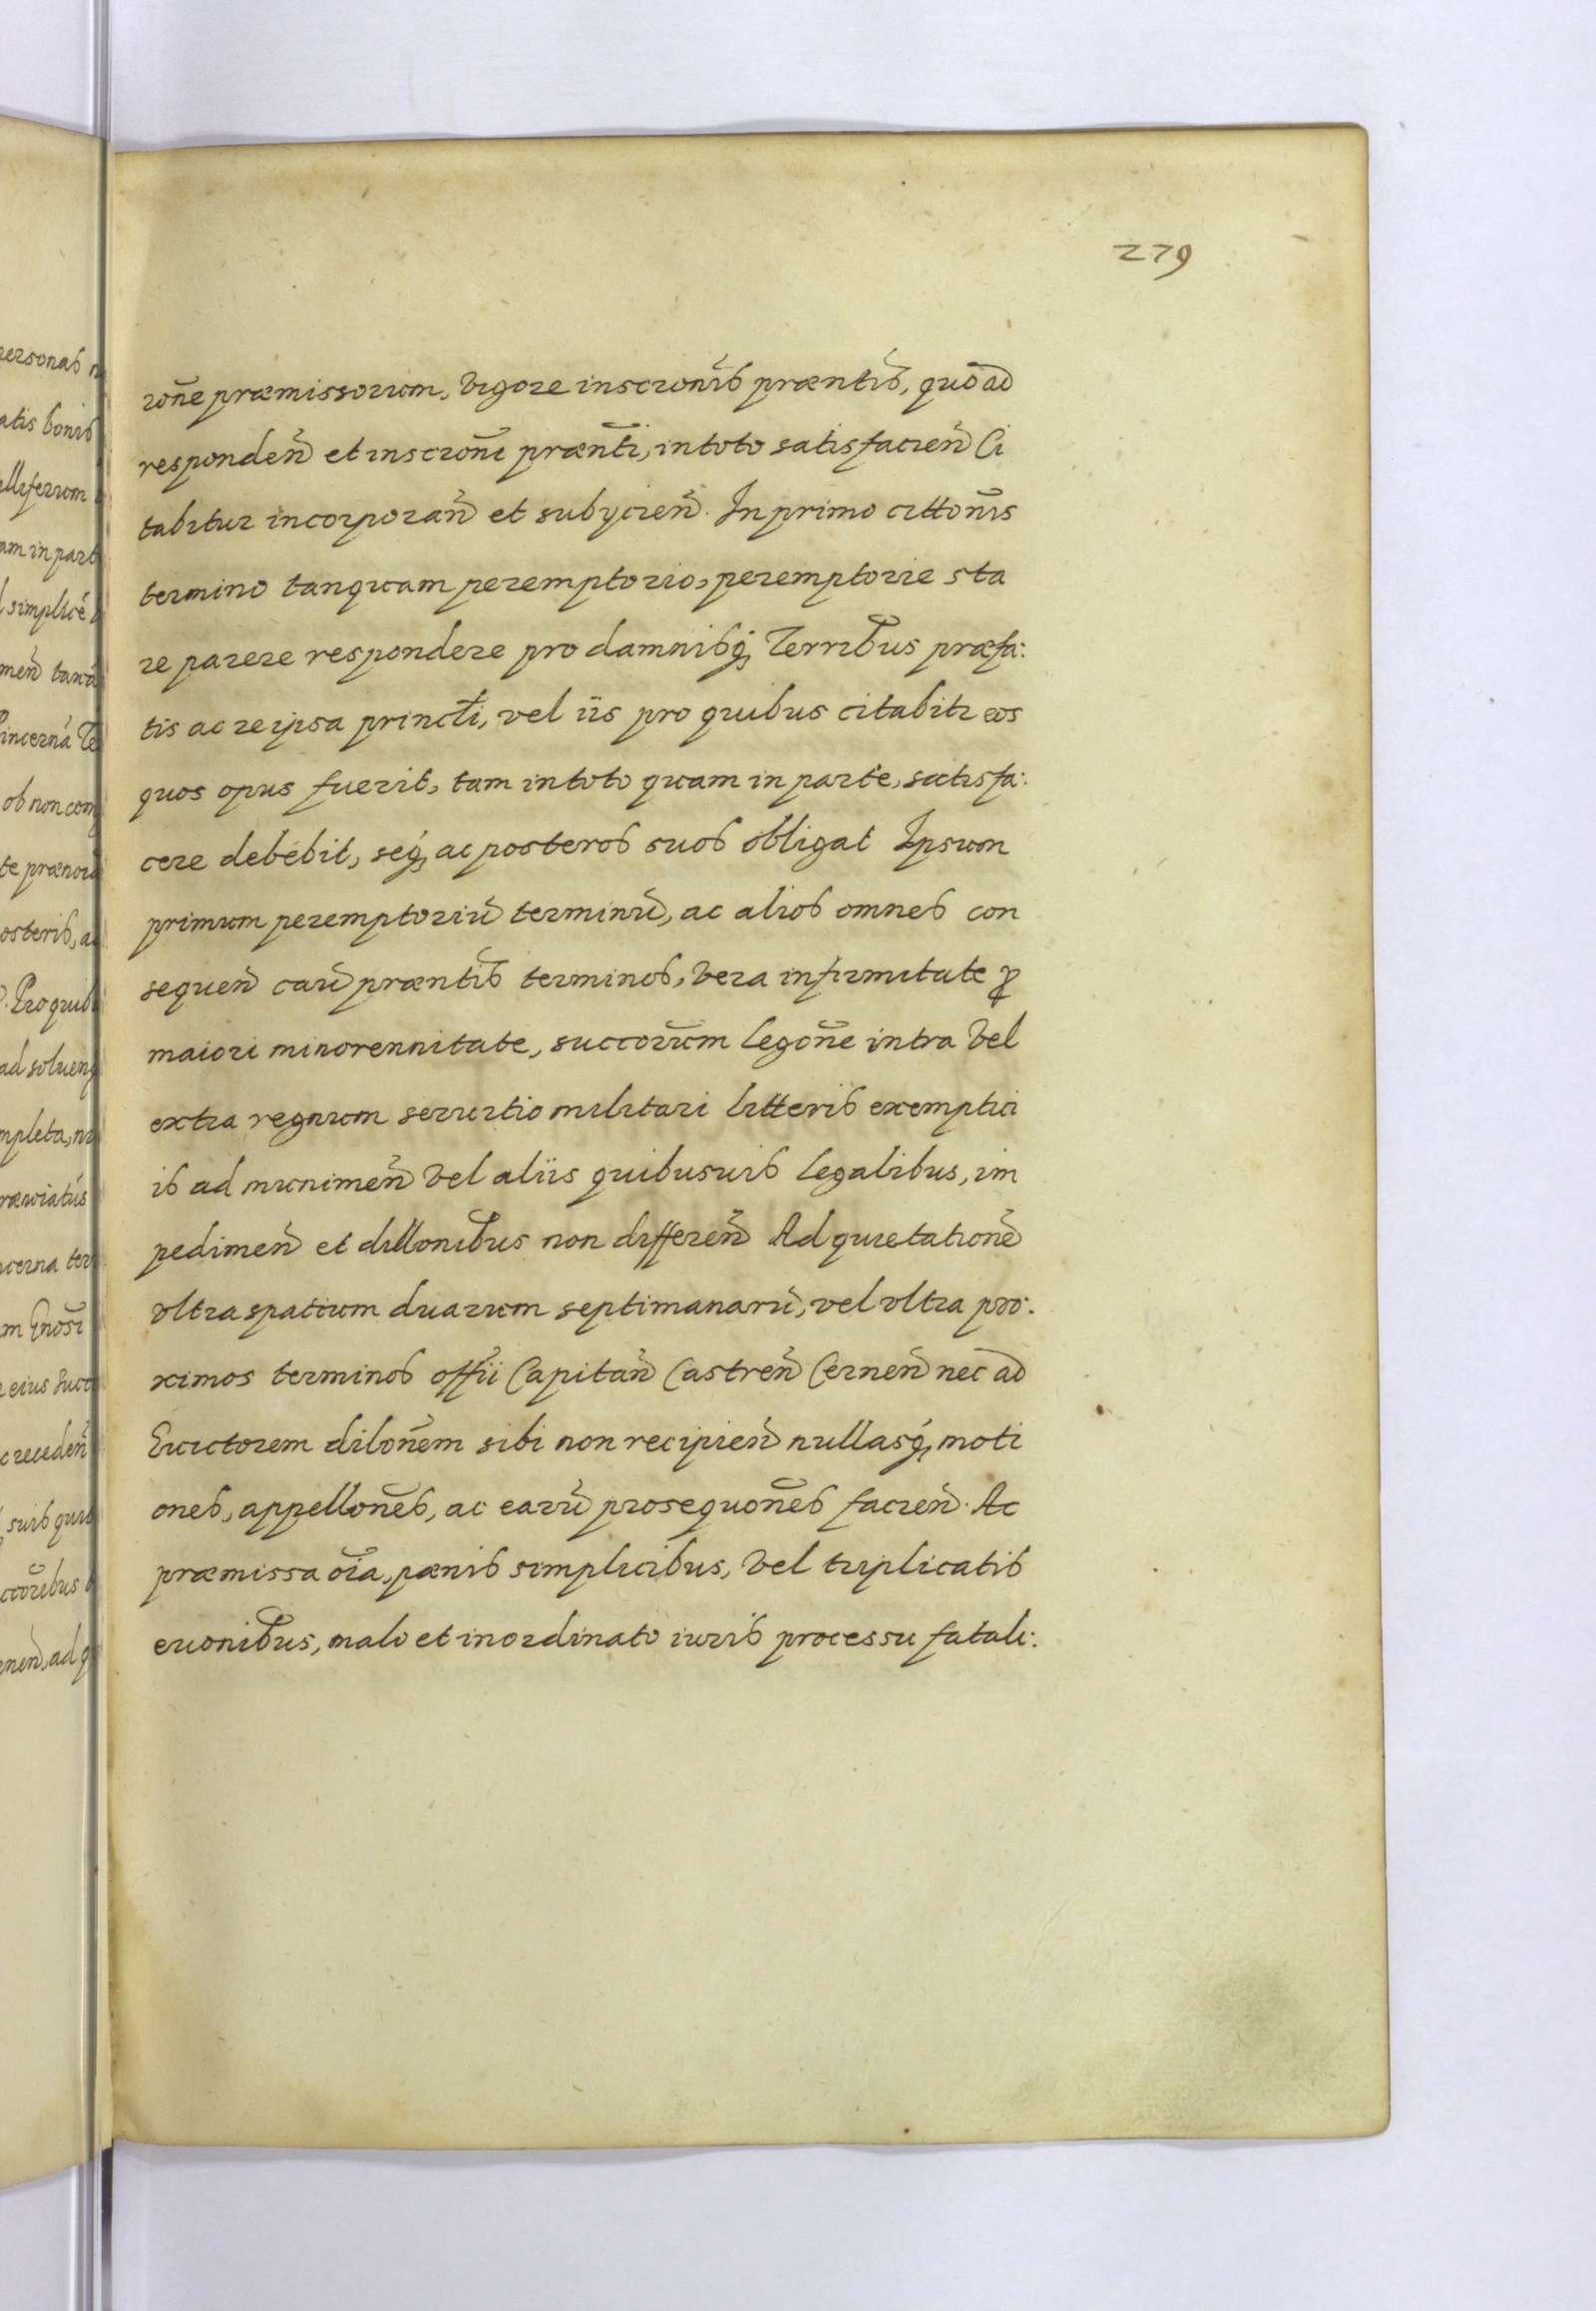 279
rõne præmissorum, vigore inscrõnis præntis, quo ad
responden̄ et inscrõni prænti, in toto satisfacien̄ Ci
tabitur incorporan̄ et subycien̄. In primo cittõnis
termino tanquam peremptorio, peremptorie sta
re parere respondere pro damnisq; Terribus præfa:
tis ac re ipsa princłi, vel iis pro quibus citabitr eos
quos opus fuerit, tam in toto quam in parte, satisfa:
cere debebit, seq; ac posteros suos obligat Ipsum
primum peremptoriū terminū, ac alios omnes con
sequen̄ carū præntis terminos, vera infirmitate ꝓ
maiori minorennitate, succorum legõne intra vel
extra regnum servitio militari litteris exemptici
is ad munimen̄ vel aliis quibusuis legalibus, im
pedimen̄ et dillonibus non differen̄ Ad quietationē
vltra spatium duarum septimanarū, vel vltra pro:
ximos terminos offii Capitan̄ Castren̄ Cernen̄ nec ad
Euictorem dilõnem sibi non recipien̄ nullasq; moti
ones, appellõnes, ac earū prosequõnes facien̄. Ac
præmissa oĩa, pænis simplicibus, vel triplicatis
euonibus, malo et inordinato iuris processu fatali:
personas
atis bonis
elliferum
am in part
simplicē
ob non com
osteris, a
ad soluen
mpleta, n
eius Succ
receden̄
suis quib
ccõribus